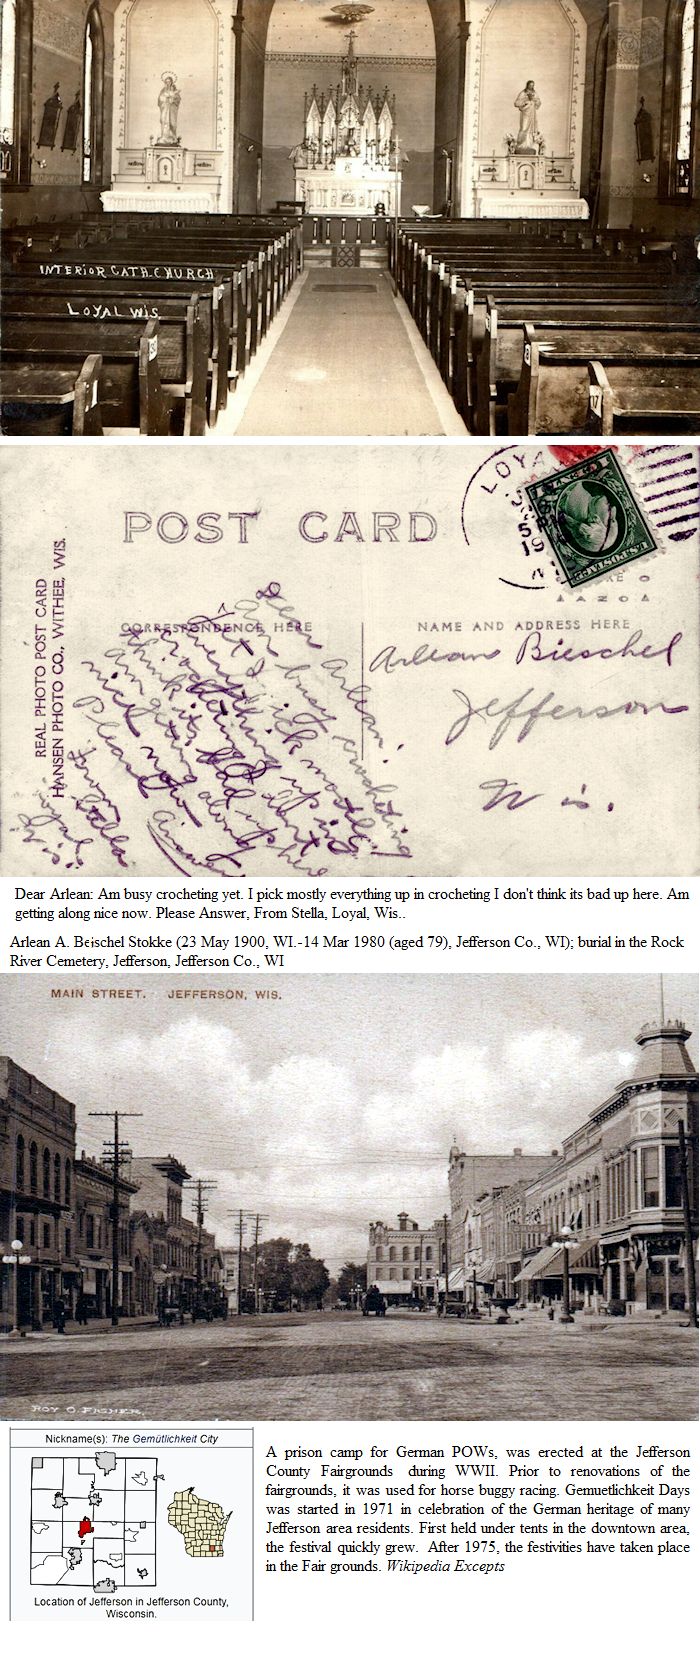 INTERIOR CATH. CHURCH
LOYAL WIS.
17
LOYA
5 PM
19
POST CARD
REAL PHOTO POST CARD
HANSEN PHOTO CO., WITHEE, WIS.
CORRESPONDENCE HERE
NAME AND ADDRESS HERE
Dear Arlean:
Am busy crocheting
yet I pick mostly
everything up in
crocheting I don't
think its bad up here
Am getting along
nice now
Please Answer
From Stella
Loyal
Wis.
Arlean Bieschel
Jefferson
Wis.
AZO
Dear Arlean: Am busy crocheting yet. I pick mostly everything up in crocheting I don't think its bad up here. Am
getting along nice now. Please Answer, From Stella, Loyal, Wis..
Arlean A. Beischel Stokke (23 May 1900, WI.-14 Mar 1980 (aged 79), Jefferson Co., WI); burial in the Rock
River Cemetery, Jefferson, Jefferson Co., WI
MAIN STREET. JEFFERSON, WIS.
ROY O. FISHER.
Nickname(s): The Gemütlichkeit City
Location of Jefferson in Jefferson County,
Wisconsin.
A prison camp for German POWs, was erected at the Jefferson
County Fairgrounds during WWII. Prior to renovations of the
fairgrounds, it was used for horse buggy racing. Gemuetlichkeit Days
was started in 1971 in celebration of the German heritage of many
Jefferson area residents. First held under tents in the downtown area,
the festival quickly grew. After 1975, the festivities have taken place
in the Fair grounds. Wikipedia Excepts